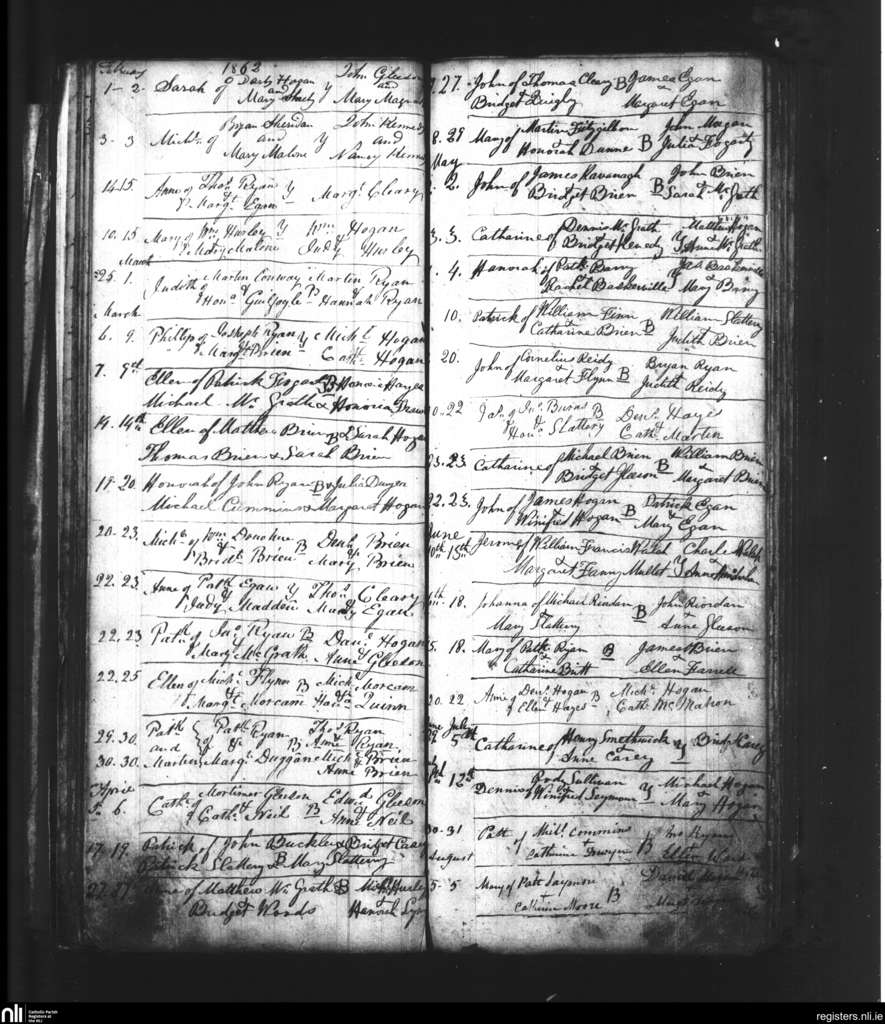 February 1862
1 - 2 Sarah of Darby Hogan y John Gleeson
and and
Mary Sheehy Mary Magrath
3 - 3 Michl. of Bryan Sheridan John Kennedy
and y and
Mary Malone Nancy
14 15 Anne of Thos. Ryan y
& Margt. Egan Margt. Cleary
10. 15 Mary of Wm. Hurley y Wm. Hogan
& Mary Malone Judy Hurley
March
25 1. Judith of Martin Conway Martin Ryan
Hona. B Hannah Ryan
March
6. 9. Phillip of Joseph Ryan y Michl. Hogan
& Margt. Brien Cath. Hogan
7. 9th Ellen of Patrick B Honoria Hayes
Michael Mc Grath & Honoria
14. 14th Ellen of Matthew Brien B & Sarah Hogan
Thomas Brien & Sarah Brien
19. 20. Honorah of John Ryan B & Julia Dwyer
Michael Cummins & Margaret Hogan
20. 23. Michl. of Wm. Donohue B Denis Brien
& Bridt. Brien & Mary Brien
22. 23 Anne of Patk. Egan y Thos. Cleary
& Judy Madden Mary Egan
22. 23 Patk. of Jno. Ryan B Danl. Hogan
& Mary McGrath Anne Gleeson
22. 25 Ellen of Michl. Flynn B Michl. Morcam
& Margt. Morcam Hona. Quinn
29. 30. Patk. of Patk. Ryan Thos. Ryan
and & B Anne Ryan
30. 30. Martin Margt. Duggan Michl. Brien
Anne Brien
Aprile
6. Cathe. of Mortimer Gleeson B Edwd. Gleeson
& Cathe. Neil Anne Neil
17. 19. Patrick of John Buckley & Bridget Casey
Patrick Slattery B Mary Slattery
27. 27 Anne of Matthew Mc Grath B Michl. Hurley
Bridget Woods Hanorah
27. John of Thomas Cleary B James Egan
Bridget Quigly Margaret Egan
8. 29 Mary of Martin Fitzgibbon B John Morgan
Honorah Dunne Julia Fogarty
May
2. John of James Kavanagh B John Brien
Bridget Brien Sarah McGrath
3. 3. Catharine of Dennis Mc Grath y Matthew Hogan
Bridget Kenedy & Anne Mc Grath
4. Hanorah of Patk. Barry y Jas. Baskerville
Rachel Baskerville Mary Barry
10. Patrick of William Finn B William Slattery
Catharine Brien Judith Brien
20. John of Cornelius Reidy B Bryan Ryan
Margaret Flynn Judith Reidy
22 Patk. of Jno. Burns B Denl. Hayes
& Hona. Slattery Cathe. Martin
23. 23 Catharine of Michael Brien B William Brien
& Bridget Gleeson Margaret Brien
22. 23. John of James Hogan B Patrick Egan
Winifred Hogan Mary Egan
June
10th 15th Jerome of William Francis Walsh Charles Walsh
Margaret Fanny Mullet y
18. Johanna of Michael Riordan B John Riordan
Mary Slattery Anne Gleeson
5. 18. Mary of Patk. Ryan B James Brien
& Catharine Britt Ellen Farrell
20. 22 Anne of Denl. Hogan B Michl. Hogan
& Ellen Hayes Cathe. McMahon
July
5th Catharine of Henry Smethwick y Bridgt. Carey
& Anne Carey
12th Dennis of Rody Sullivan y Michael Hogan
& Winifred Seymour Mary Hogan
30. 31 Patt of Michl. Commins B Jno. Ryan
Catherine Dwyer
August
5 - 5 Mary of Patt Saymore
Catherine Moore B
nli Catholic Parish
Registers at
the NLI
registers.nli.ie